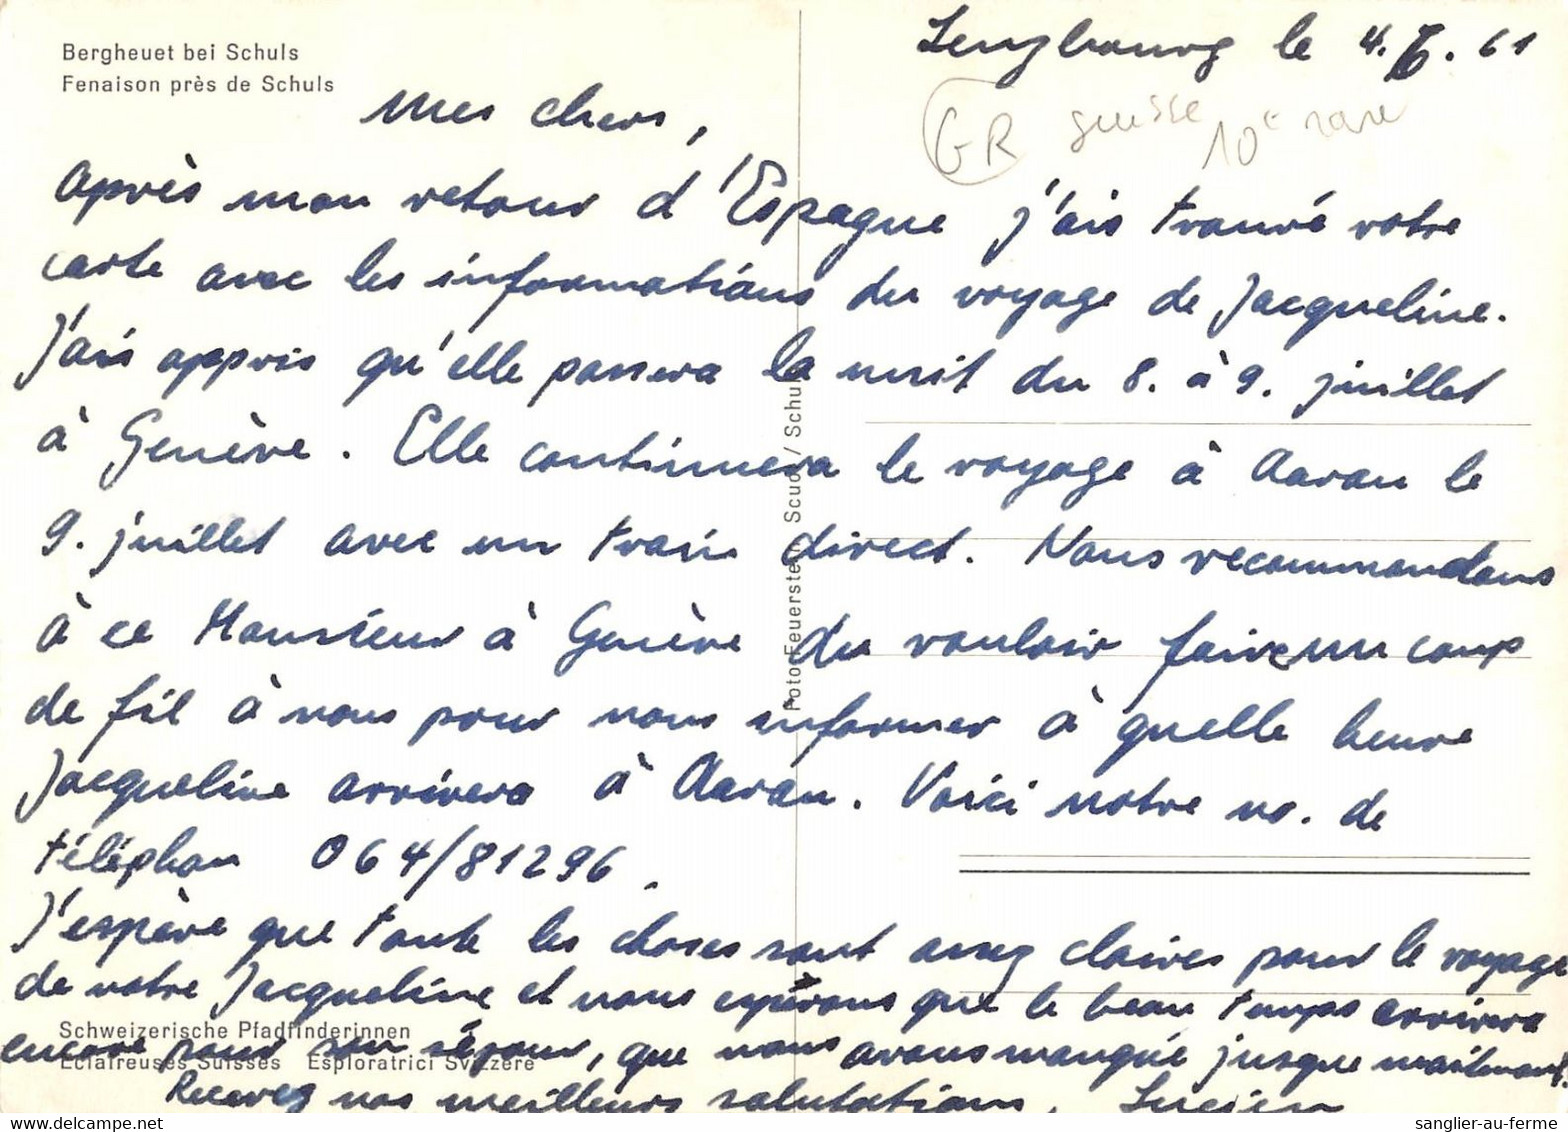 Bergheuet bei Schuls
Fenaison près de Schuls
Lenzbourg le 4.6.61
GR suisse 10e rare
Mes chers,
Après mon retour d'Espagne j'ais trouvé votre
carte avec les informations du voyage de Jacqueline.
J'ais appris qu'elle passera la nuit du 8. à 9. juillet
à Genève. Elle continuera le voyage à Aarau le
9. juillet avec un train direct. Nous recommandons
à ce Monsieur à Genève du vouloir faire un coup
de fil à nous pour nous informer à quelle heure
Jacqueline arrivera à Aarau. Voici notre no. de
téléphon 064/81296.
J'espère que toute les choses sont assez claires pour le voyage
de votre Jacqueline et nous espérons que le beau temps arrivera
encore pour son séjour, que nous avons manquée jusque maintenant.
Recevez nos meilleurs salutations, Lucien
Foto Feuerstein, Scuol / Schuls
Schweizerische Pfadfinderinnen
Eclaireuses Suisses Esploratrici Svizzere
sanglier-au-ferme